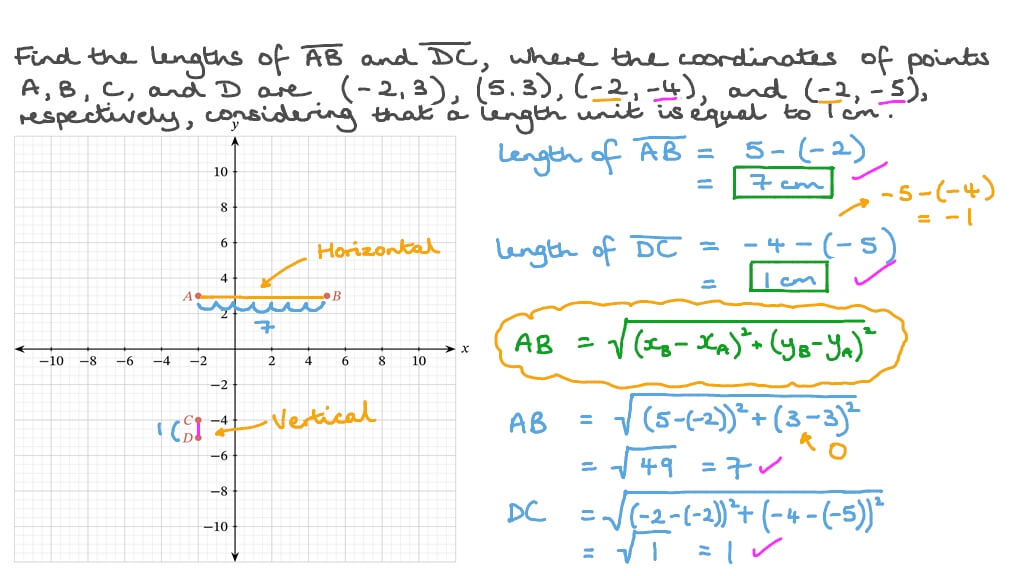 Find the lengths of A̅B̅ and D̅C̅, where the coordinates of points
A, B, C, and D are (-2,3), (5.3), (-2,-4), and (-2,-5),
respectively, considering that a length unit is equal to 1 cm.
y
10
8
6
4
2
-2
-4
-6
-8
-10
-10 -8 -6 -4 -2 2 4 6 8 10 x
Horizontal
A B
7
1 ( C
D
Vertical
Length of A̅B̅ = 5-(-2)
= 7 cm
-5-(-4)
= -1
Length of D̅C̅ = -4-(-5)
= 1 cm
AB = √(x_B - x_A)² + (y_B - y_A)²
AB = √(5-(-2))² + (3-3)²
0
= √49 = 7
DC = √(-2-(-2))² + (-4-(-5))²
= √1 = 1